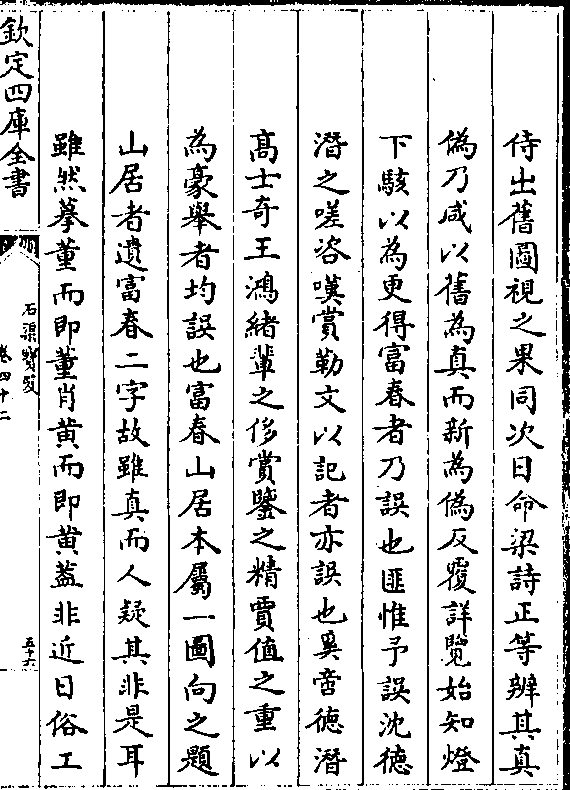 侍出舊圖視之果同次日命梁詩正等辨其真
偽乃咸以舊為真而新為偽反覆詳覽始知燈
下駭以為更得富春者乃誤也匪惟予誤沈德
潛之嗟咨嘆賞勒文以記者亦誤也奚啻德潛
高士奇王鴻緒輩之侈賞鑒之精賈值之重以
為豪舉者均誤也富春山居本屬一圖向之題
山居者遺富春二字故雖真而人疑其非是耳
雖然摹董而即董肖黄而即黄蓋非近日俗工
欽定四庫全書
石渠寶笈
卷四十二
五十六